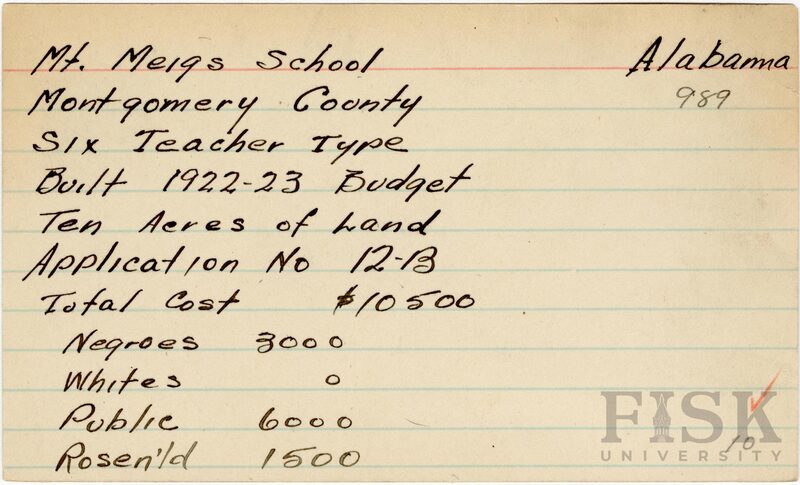 Mt. Meigs School Alabama
989
Montgomery County
Six Teacher Type
Built 1922-23 Budget
Ten Acres of Land
Application No 12-B
Total Cost $10500
Negroes 3000
Whites 0
Public 6000
Rosen'ld 1500
10
FISK
UNIVERSITY